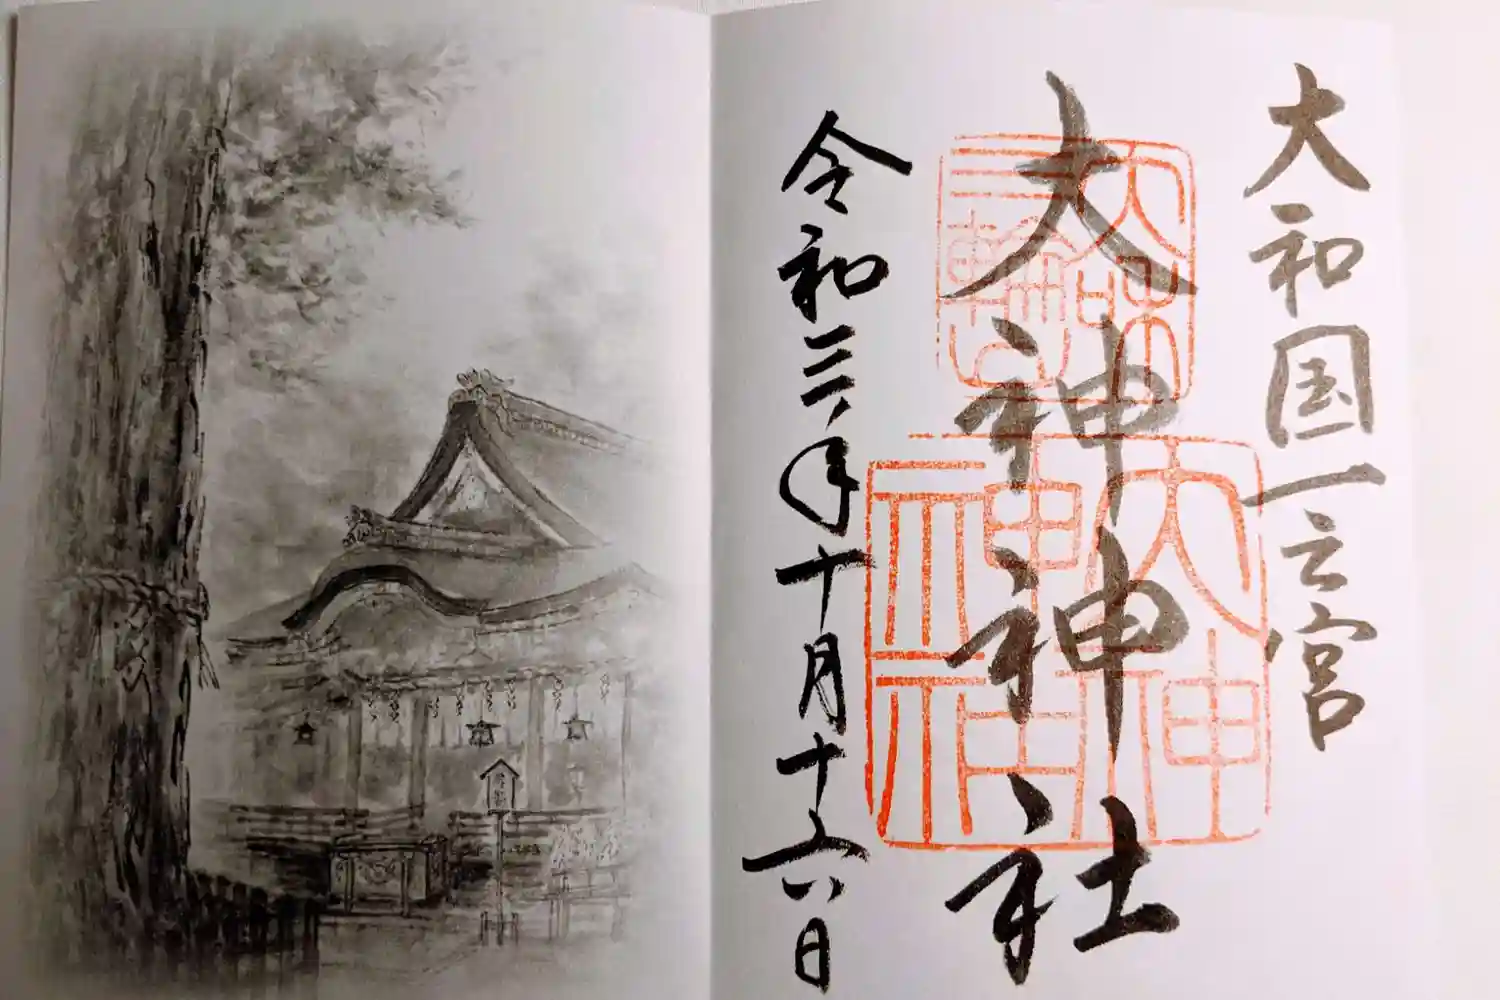 大和国一之宮
大神神社
大神
神社
令和三年十月十六日